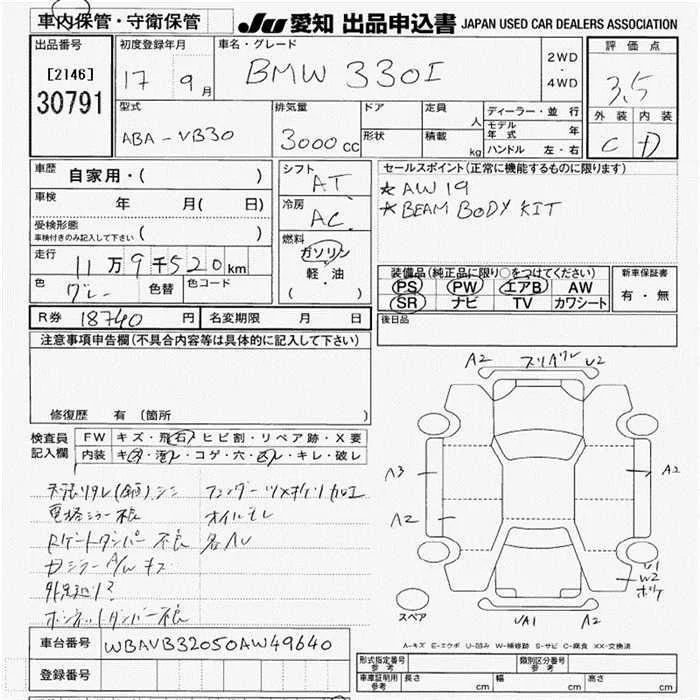 車内保管・守衛保管
JU 愛知 出品申込書 JAPAN USED CAR DEALERS ASSOCIATION
出品番号
[2146]
30791
初度登録年月
17 9月
車名・グレード
BMW 330I
2WD
・
4WD
評価点
3.5
外装 内装
C D
型式
ABA-VB30
排気量
3000cc
ドア
形状
定員 人
積載 kg
ディーラー・並行
モデル年式 年
ハンドル 左・右
車歴
自家用・( )
車検
年 月( 日)
受検形態
車検付きのみ記入して下さい ( )
走行
11万9千520km
色
グレー
色替
色コード
シフト
AT
冷房
AC
燃料
ガソリン
軽・油
( )
セールスポイント(正常に機能するものに限ります)
★AW 19
★BEAM BODY KIT
装備品(純正品に限り○をつけてください)
PS PW エアB AW
SR ナビ TV カワシート
新車保証書
有・無
R券 18740円
名変期限 月 日
後日品
注意事項申告欄(不具合内容等は具体的に記入して下さい)
修復歴 有(箇所 )
検査員記入欄
FW キズ・飛石・ヒビ割・リペア跡・X要
内装 キズ・汚レ・コゲ・穴・凹・キレ・破レ
電格ミラー不良
オイルモレ
外見
ボンネットダンパー不良
A2 U2
A3
A2
A2
U1
W2
ボケ
スペア
UA1 A2
A-キズ E-エクボ U-凹み W-補修跡 S-サビ C-腐食 XX-交換済
車台番号 WBAVB32050AW49640
登録番号
形式指定番号
参考
類別区分番号
参考
車庫証明用
参考
長さ cm
幅 cm
高さ cm